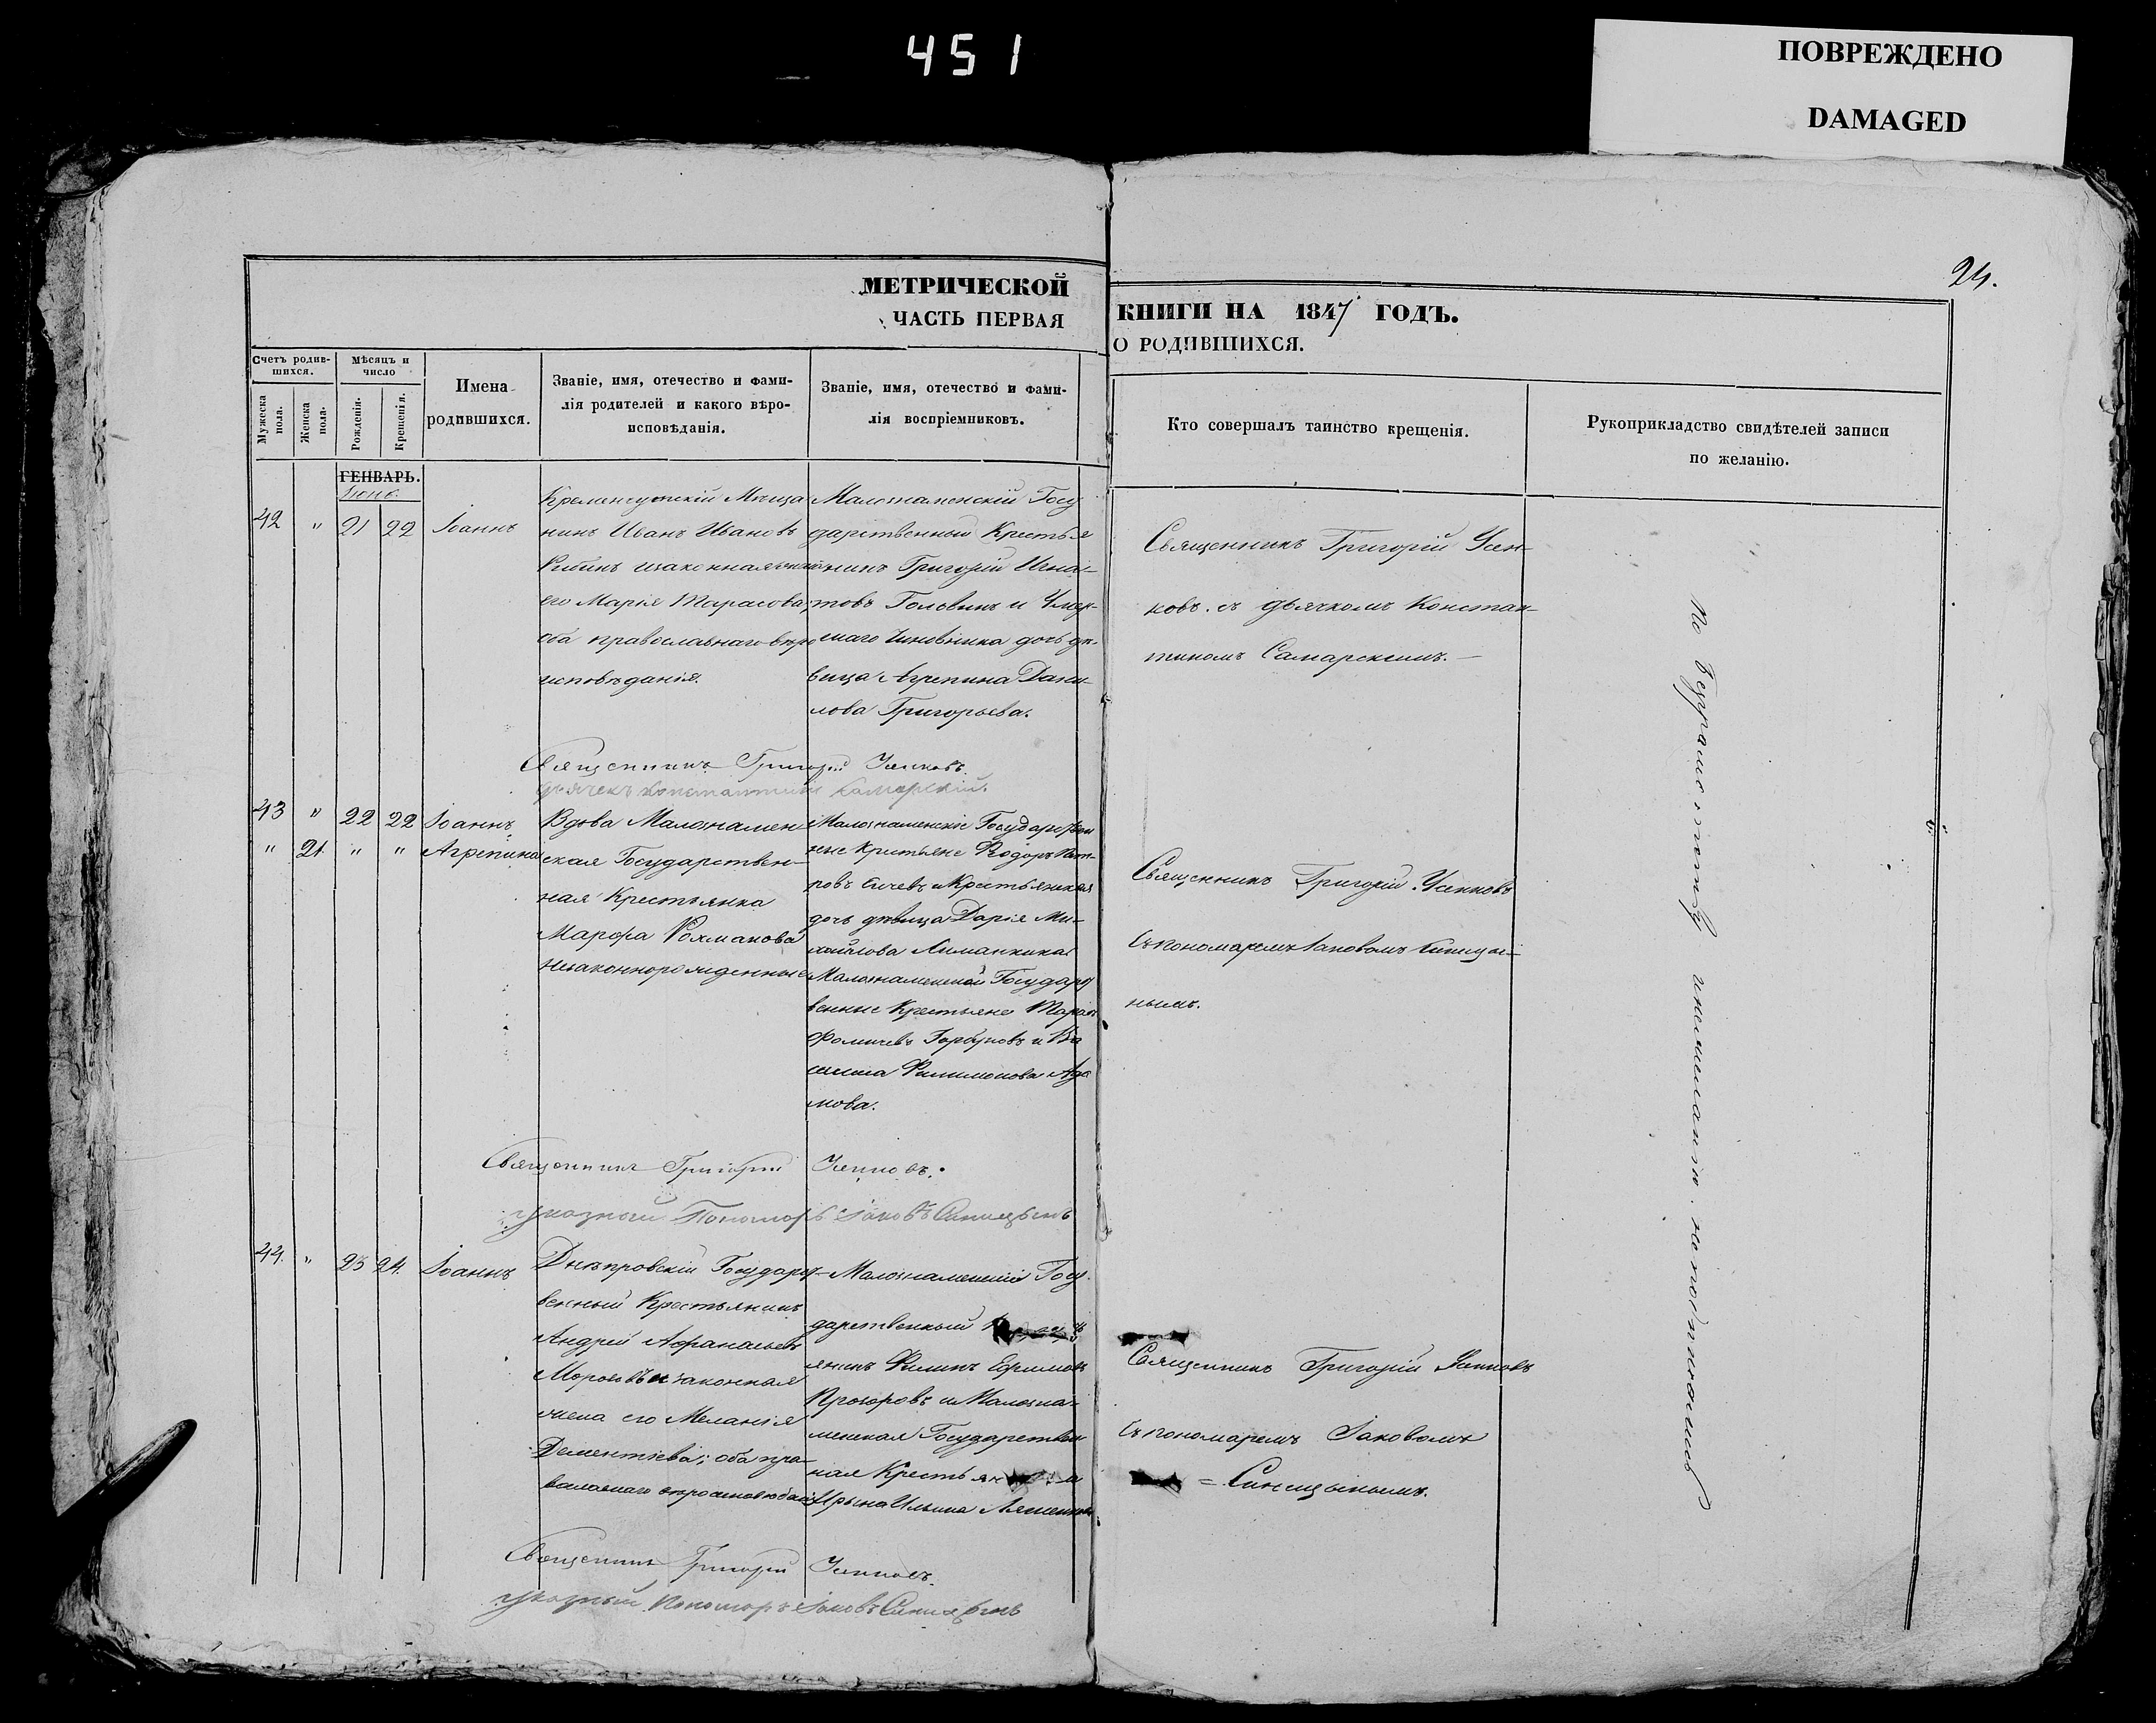 451
ПОВРЕЖДЕНО
DAMAGED
24.
МЕТРИЧЕСКОЙ
ЧАСТЬ ПЕРВАЯ
КНИГИ НА 1847 ГОДЪ.
О РОДИВШИХСЯ.
Счетъ родив-
шихся.
Мужеска
пола.
Женска
пола.
Мѣсяцъ и
число
Рожденія.
Крещенія.
Имена
родившихся.
Званіе, имя, отечество и фами-
лія родителей и какого вѣро-
исповѣданія.
Званіе, имя, отечество и фами-
лія воспріемниковъ.
Кто совершалъ таинство крещенія.
Рукоприкладство свидѣтелей записи
по желанію.
ГЕНВАРЬ.
42 " 21 22 Іоаннъ
Кременчугскій Мѣща
нинъ Иванъ Ивановъ
его Марія Тарасова,
оба православнаго вѣро
исповѣданія.
Малознаменскій Госу
дарственный Крестья
нинъ Григорій Игна-
товъ Головинъ и
снаго Чиновника дочь дѣ-
вица Агрепина Дани-
лова Григорьева.
Священникъ Григорій Усен-
ковъ. съ дьячкомъ Констан-
тиномъ Самарскимъ.
Священникъ Григорій Усенковъ.
Дьячекъ Константинъ Самарскій.
43 " 22 22 Іоаннъ
" 21. " " Агрепина
Вдова Малознамен
ская Государствен-
ная Крестьянка
Марфа
незаконнорожденные
Малознаменскіе Государствен
ные Крестьяне Ѳедоръ Пет-
ровъ и Крестьянская
дочь дѣвица Дарія Ми-
хайлова
Малознаменской Государст
венные Крестьяне Тарасъ
Фомичевъ Горбуновъ и Ва
силиса Филимонова Ада
мова.
Священникъ Григорій Усенковъ
Съ пономаремъ Іаковомъ Синицы-
нымъ.
Священникъ Григорій Усенковъ.
Указный Пономарь Іаковъ Синицынъ
44. " 23 24. Іоаннъ
Днѣпровскій Государст-
венный Крестьянинъ
Андрей Афанасьевъ
Морозовъ и законная
жена его Меланія
Дементіева; оба пра-
вославнаго вѣроисповѣданія
Малознаменскій Госу
дарственный
янинъ Филипъ Ефимовъ
Прозоровъ и Малозна-
менская Государствен
ная
Ирина Ильина
Священникъ Григорій Усенковъ
Съ пономаремъ Іаковомъ
= Синицынымъ.
Священникъ Григорій Усенковъ.
Указный Пономарь Іаковъ Синицынъ
По безграмотству